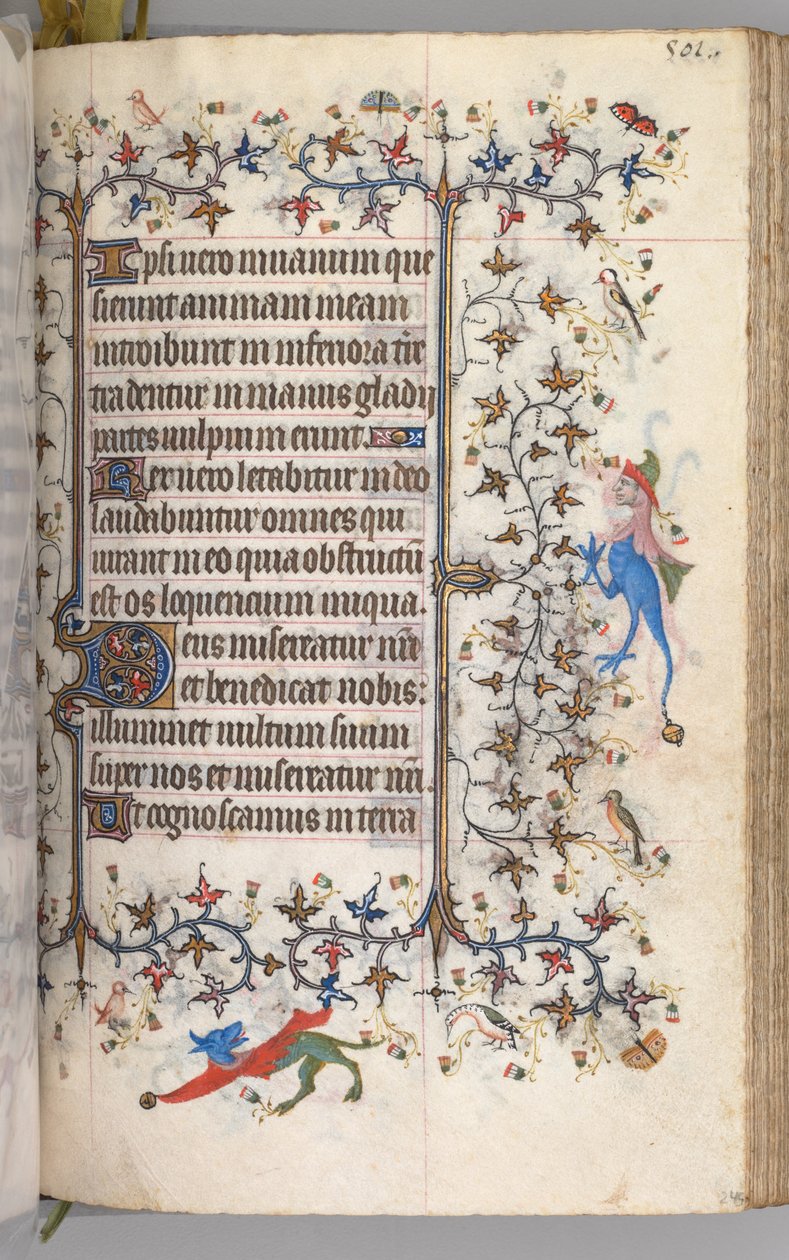 501.
Ipsi uero in uanum que
sierunt animam meam
introibunt in inferiora tr̄e
tradentur in manus gladij
partes uulpium erunt.
Rex uero letabitur in deo
laudabuntur omnes qui
iurant in eo quia obstructū
est os loquencium iniqua.
Deus misereatur nr̄i
et benedicat nobis:
illuminet uultum suum
super nos et misereatur nr̄i.
Ut cognoscamus in terra